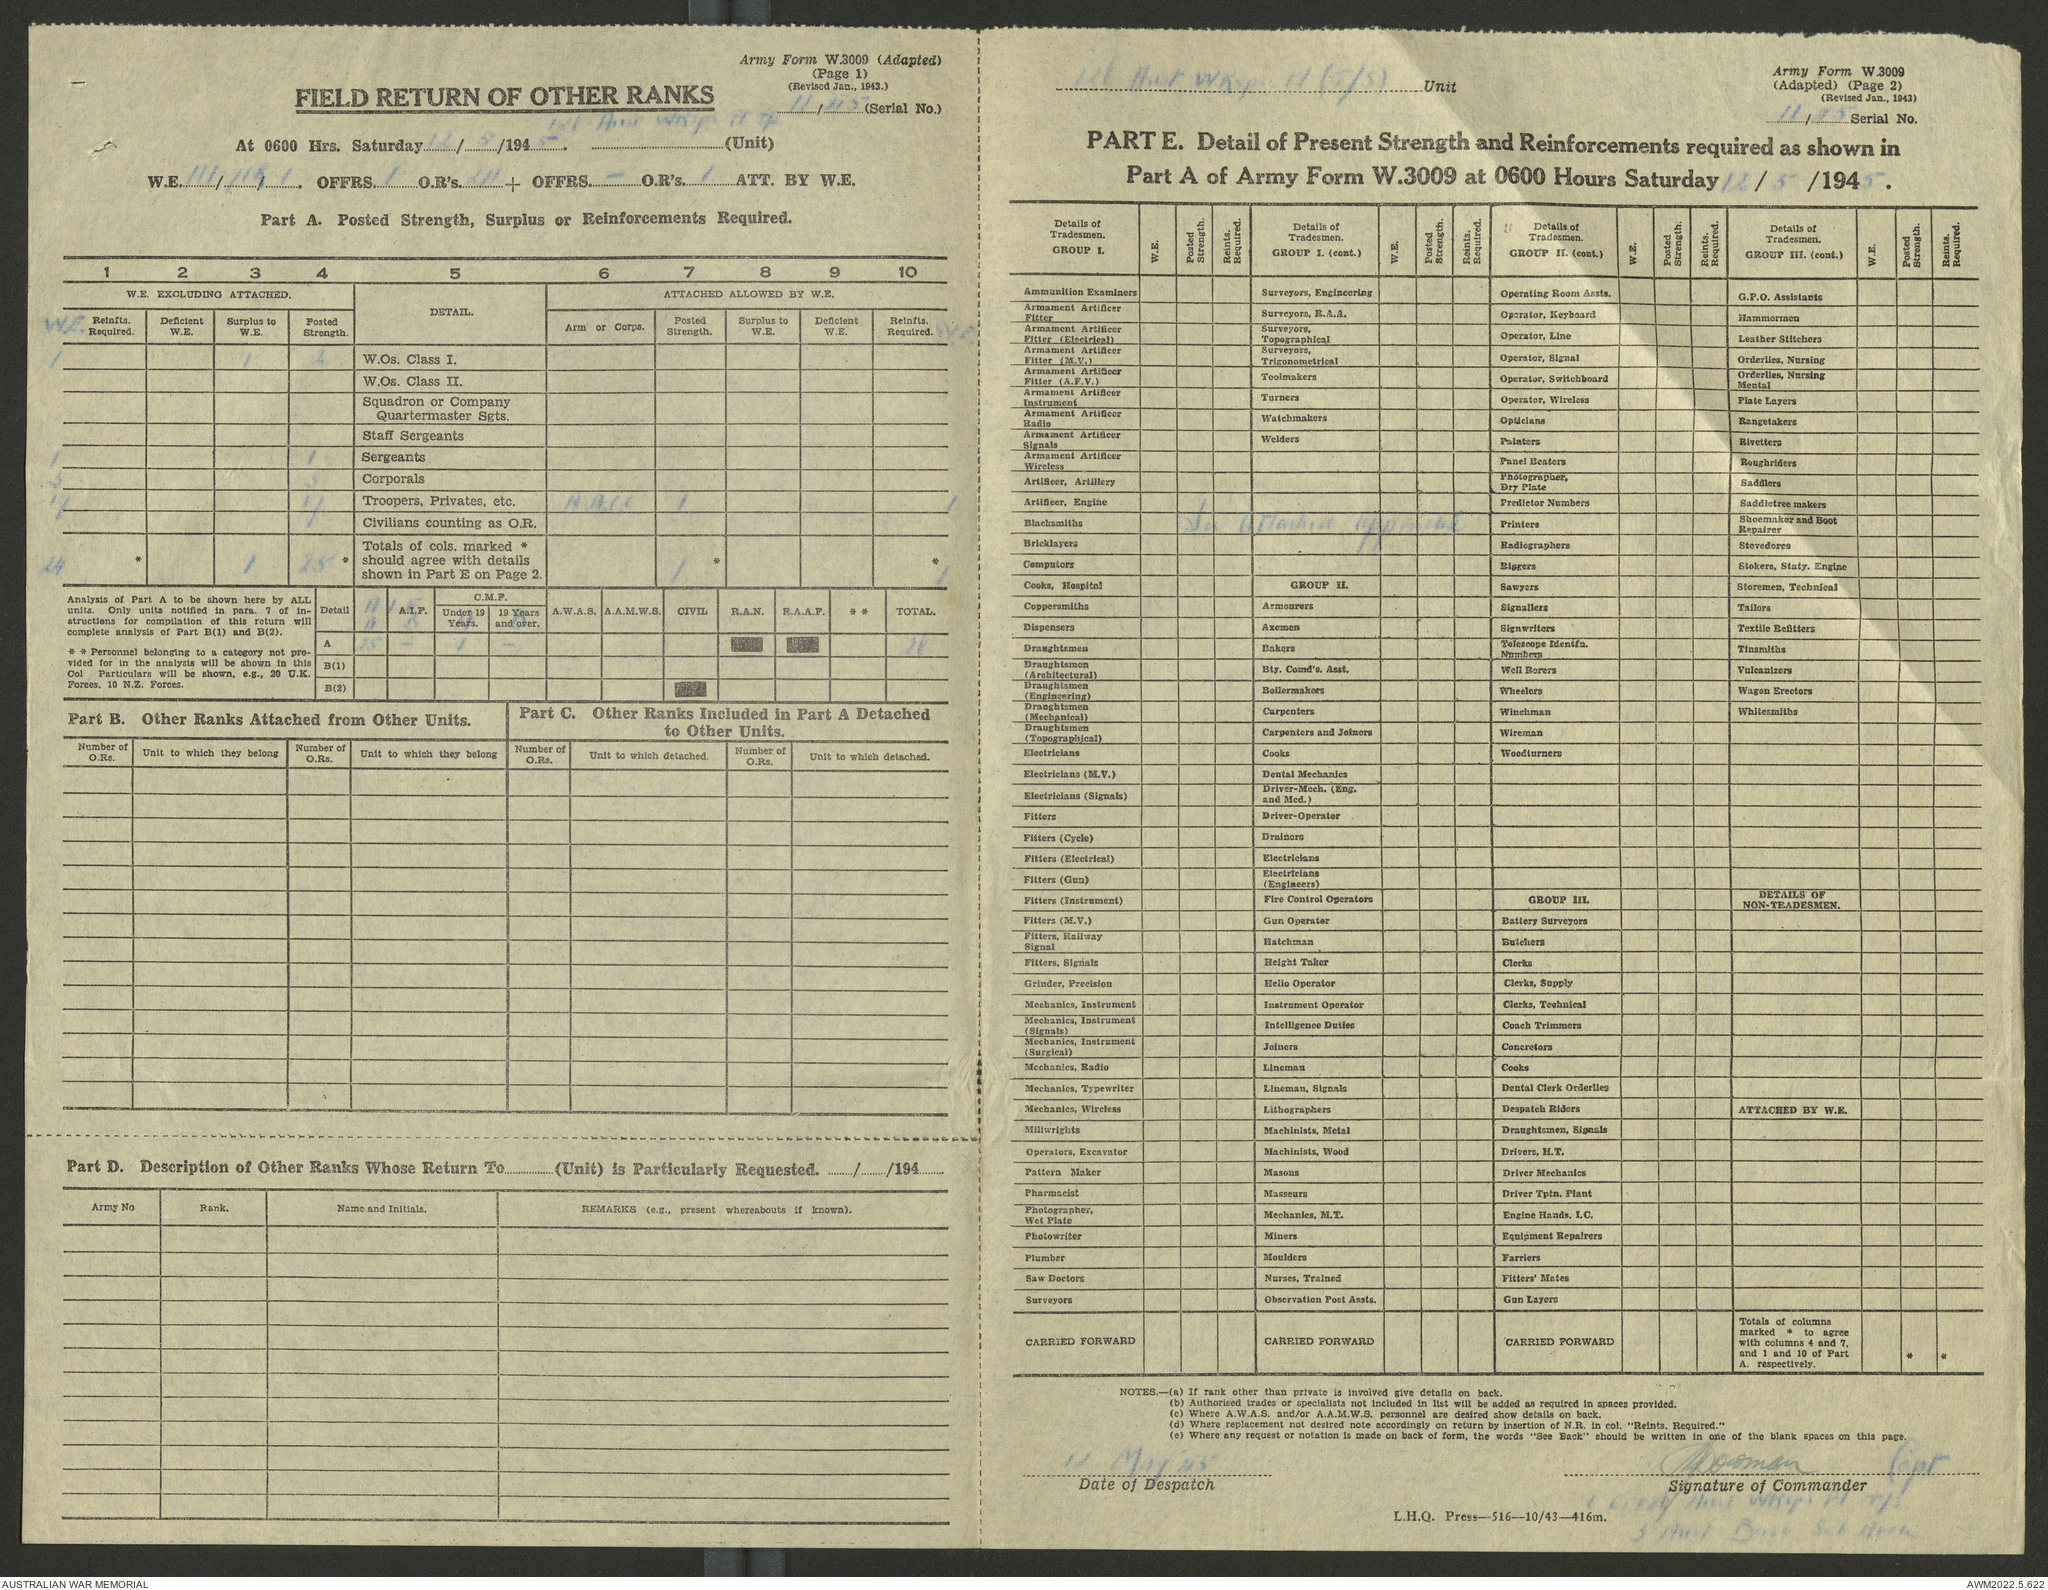 Army Form W.3009 (Adapted)
(Page 1)
(Revised Jan., 1943.)
11/45 (Serial No.)
FIELD RETURN OF OTHER RANKS
At 0600 Hrs. Saturday 12/5/1945. (Unit)
W.E. / / . OFFRS. 1 O.R's. 24 + OFFRS. – O.R's. 1 ATT. BY W.E.
Part A. Posted Strength, Surplus or Reinforcements Required.
1 2 3 4 5 6 7 8 9 10
W.E. EXCLUDING ATTACHED. DETAIL. ATTACHED ALLOWED BY W.E.
W.E. Reinfts. Required. Deficient W.E. Surplus to W.E. Posted Strength. Arm or Corps. Posted Strength. Surplus to W.E. Deficient W.E. Reinfts. Required. W.E.
1 1 2 W.Os. Class I.
W.Os. Class II.
Squadron or Company Quartermaster Sgts.
Staff Sergeants
1 1 Sergeants
5 5 Corporals
17 17 Troopers, Privates, etc. 1 1
Civilians counting as O.R.
24 * 1 25 * Totals of cols. marked * should agree with details shown in Part E on Page 2. 1 * * 1
Analysis of Part A to be shown here by ALL units. Only units notified in para. 7 of instructions for compilation of this return will complete analysis of Part B(1) and B(2).
* * Personnel belonging to a category not provided for in the analysis will be shown in this Col Particulars will be shown, e.g., 20 U.K. Forces, 10 N.Z. Forces.
Detail A.I.F. C.M.F. Under 19 Years. 19 Years and over. A.W.A.S. A.A.M.W.S. CIVIL R.A.N. R.A.A.F. * * TOTAL.
A 25 – 1 – 26
B(1)
B(2)
Part B. Other Ranks Attached from Other Units.
Part C. Other Ranks Included in Part A Detached to Other Units.
Number of O.Rs. Unit to which they belong Number of O.Rs. Unit to which they belong Number of O.Rs. Unit to which detached. Number of O.Rs. Unit to which detached.
Part D. Description of Other Ranks Whose Return To (Unit) is Particularly Requested. / /194
Army No Rank. Name and Initials. REMARKS (e.g., present whereabouts if known).
Aust Wksps Pl (T/S) Unit
Army Form W.3009
(Adapted) (Page 2)
(Revised Jan., 1943)
11/45 Serial No.
PART E. Detail of Present Strength and Reinforcements required as shown in
Part A of Army Form W.3009 at 0600 Hours Saturday 12/5/1945.
Details of Tradesmen. GROUP I. W.E. Posted Strength. Reints. Required.
Details of Tradesmen. GROUP I. (cont.) W.E. Posted Strength. Reints. Required.
Details of Tradesmen. GROUP II. (cont.) W.E. Posted Strength. Reints. Required.
Details of Tradesmen. GROUP III. (cont.) W.E. Posted Strength. Reints. Required.
Ammunition Examiners
Armament Artificer Fitter
Armament Artificer Fitter (Electrical)
Armament Artificer Fitter (M.V.)
Armament Artificer Fitter (A.F.V.)
Armament Artificer Instrument
Armament Artificer Radio
Armament Artificer Signals
Armament Artificer Wireless
Artificer, Artillery
Artificer, Engine
Blacksmiths
Bricklayers
Computors
Cooks, Hospital
Coppersmiths
Dispensers
Draughtsmen
Draughtsmen (Architectural)
Draughtsmen (Engineering)
Draughtsmen (Mechanical)
Draughtsmen (Topographical)
Electricians
Electricians (M.V.)
Electricians (Signals)
Fitters
Fitters (Cycle)
Fitters (Electrical)
Fitters (Gun)
Fitters (Instrument)
Fitters (M.V.)
Fitters, Railway Signal
Fitters, Signals
Grinder, Precision
Mechanics, Instrument
Mechanics, Instrument (Signals)
Mechanics, Instrument (Surgical)
Mechanics, Radio
Mechanics, Typewriter
Mechanics, Wireless
Millwrights
Operators, Excavator
Pattern Maker
Pharmacist
Photographer, Wet Plate
Photowriter
Plumber
Saw Doctors
Surveyors
CARRIED FORWARD
Surveyors, Engineering
Surveyors, R.A.A.
Surveyors, Topographical
Surveyors, Trigonometrical
Toolmakers
Turners
Watchmakers
Welders
See Attached appendix
GROUP II.
Armourers
Axemen
Bakers
Bty. Comd's. Asst.
Boilermakers
Carpenters
Carpenters and Joiners
Cooks
Dental Mechanics
Driver-Mech. (Eng. and Med.)
Driver-Operator
Drainers
Electricians
Electricians (Engineers)
Fire Control Operators
Gun Operator
Hatchman
Height Taker
Helio Operator
Instrument Operator
Intelligence Duties
Joiners
Lineman
Lineman, Signals
Lithographers
Machinists, Metal
Machinists, Wood
Masons
Masseurs
Mechanics, M.T.
Miners
Moulders
Nurses, Trained
Observation Post Assts.
CARRIED FORWARD
Operating Room Assts.
Operator, Keyboard
Operator, Line
Operator, Signal
Operator, Switchboard
Operator, Wireless
Opticians
Painters
Panel Beaters
Photographer, Dry Plate
Predictor Numbers
Printers
Radiographers
Riggers
Sawyers
Signallers
Signwriters
Telescope Identfn. Numbers
Well Borers
Wheelers
Winchman
Wireman
Woodturners
GROUP III.
Battery Surveyors
Butchers
Clerks
Clerks, Supply
Clerks, Technical
Coach Trimmers
Concretors
Cooks
Dental Clerk Orderlies
Despatch Riders
Draughtsmen, Signals
Drivers, H.T.
Driver Mechanics
Driver Tptn. Plant
Engine Hands, I.C.
Equipment Repairers
Farriers
Fitters' Mates
Gun Layers
CARRIED FORWARD
G.P.O. Assistants
Hammermen
Leather Stitchers
Orderlies, Nursing
Orderlies, Nursing Mental
Plate Layers
Rangetakers
Rivetters
Roughriders
Saddlers
Saddletree makers
Shoemaker and Boot Repairer
Stevedores
Stokers, Staty. Engine
Storemen, Technical
Tailors
Textile Refitters
Tinsmiths
Vulcanizers
Wagon Erectors
Whitesmiths
DETAILS OF NON-TRADESMEN.
ATTACHED BY W.E.
Totals of columns marked * to agree with columns 4 and 7, and 1 and 10 of Part A. respectively. * *
NOTES.—(a) If rank other than private is involved give details on back.
(b) Authorised trades or specialists not included in list will be added as required in spaces provided.
(c) Where A.W.A.S. and/or A.A.M.W.S. personnel are desired show details on back.
(d) Where replacement not desired note accordingly on return by insertion of N.R. in col. "Reints. Required."
(e) Where any request or notation is made on back of form, the words "See Back" should be written in one of the blank spaces on this page.
May 45 Capt
Date of Despatch Signature of Commander
Aust Wksps Pl T/S
Aust Base Sub Area
L.H.Q. Press—516—10/43—416m.
AUSTRALIAN WAR MEMORIAL AWM2022.5.622